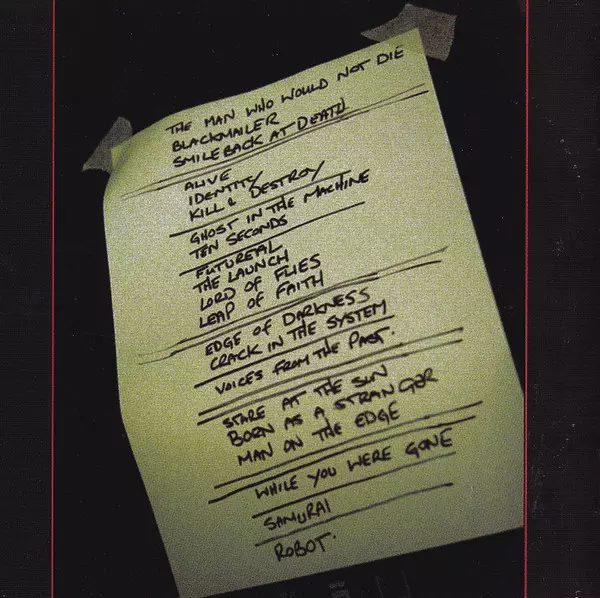 THE MAN WHO WOULD NOT DIE
BLACKMAILER
SMILE BACK AT DEATH
ALIVE
IDENTITY
KILL & DESTROY
GHOST IN THE MACHINE
TEN SECONDS
FUTUREAL
THE LAUNCH
LORD OF FLIES
LEAP OF FAITH
EDGE OF DARKNESS
CRACK IN THE SYSTEM
VOICES FROM THE PAST.
STARE AT THE SUN
BORN AS A STRANGER
MAN ON THE EDGE
WHILE YOU WERE GONE
SAMURAI
ROBOT.